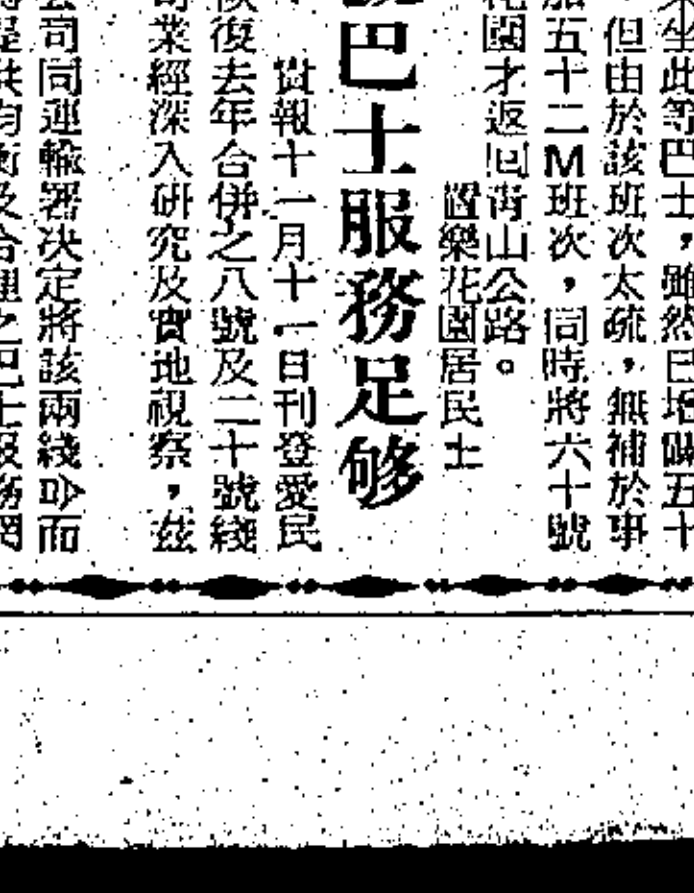 坐此等巴士，雖然已增闢五十
但由於該班次太疏，無補於事
五十二M班次，同時將六十號
花園才返回青山公路。
置樂花園居民士
巴士服務足够
貴報十一月十一日刊登愛民
恢復去年合併之八號及二十號綫
業經深入研究及實地視察，茲
公司同運輸署決定將該兩綫
而
均衡及合理之巴士服務網